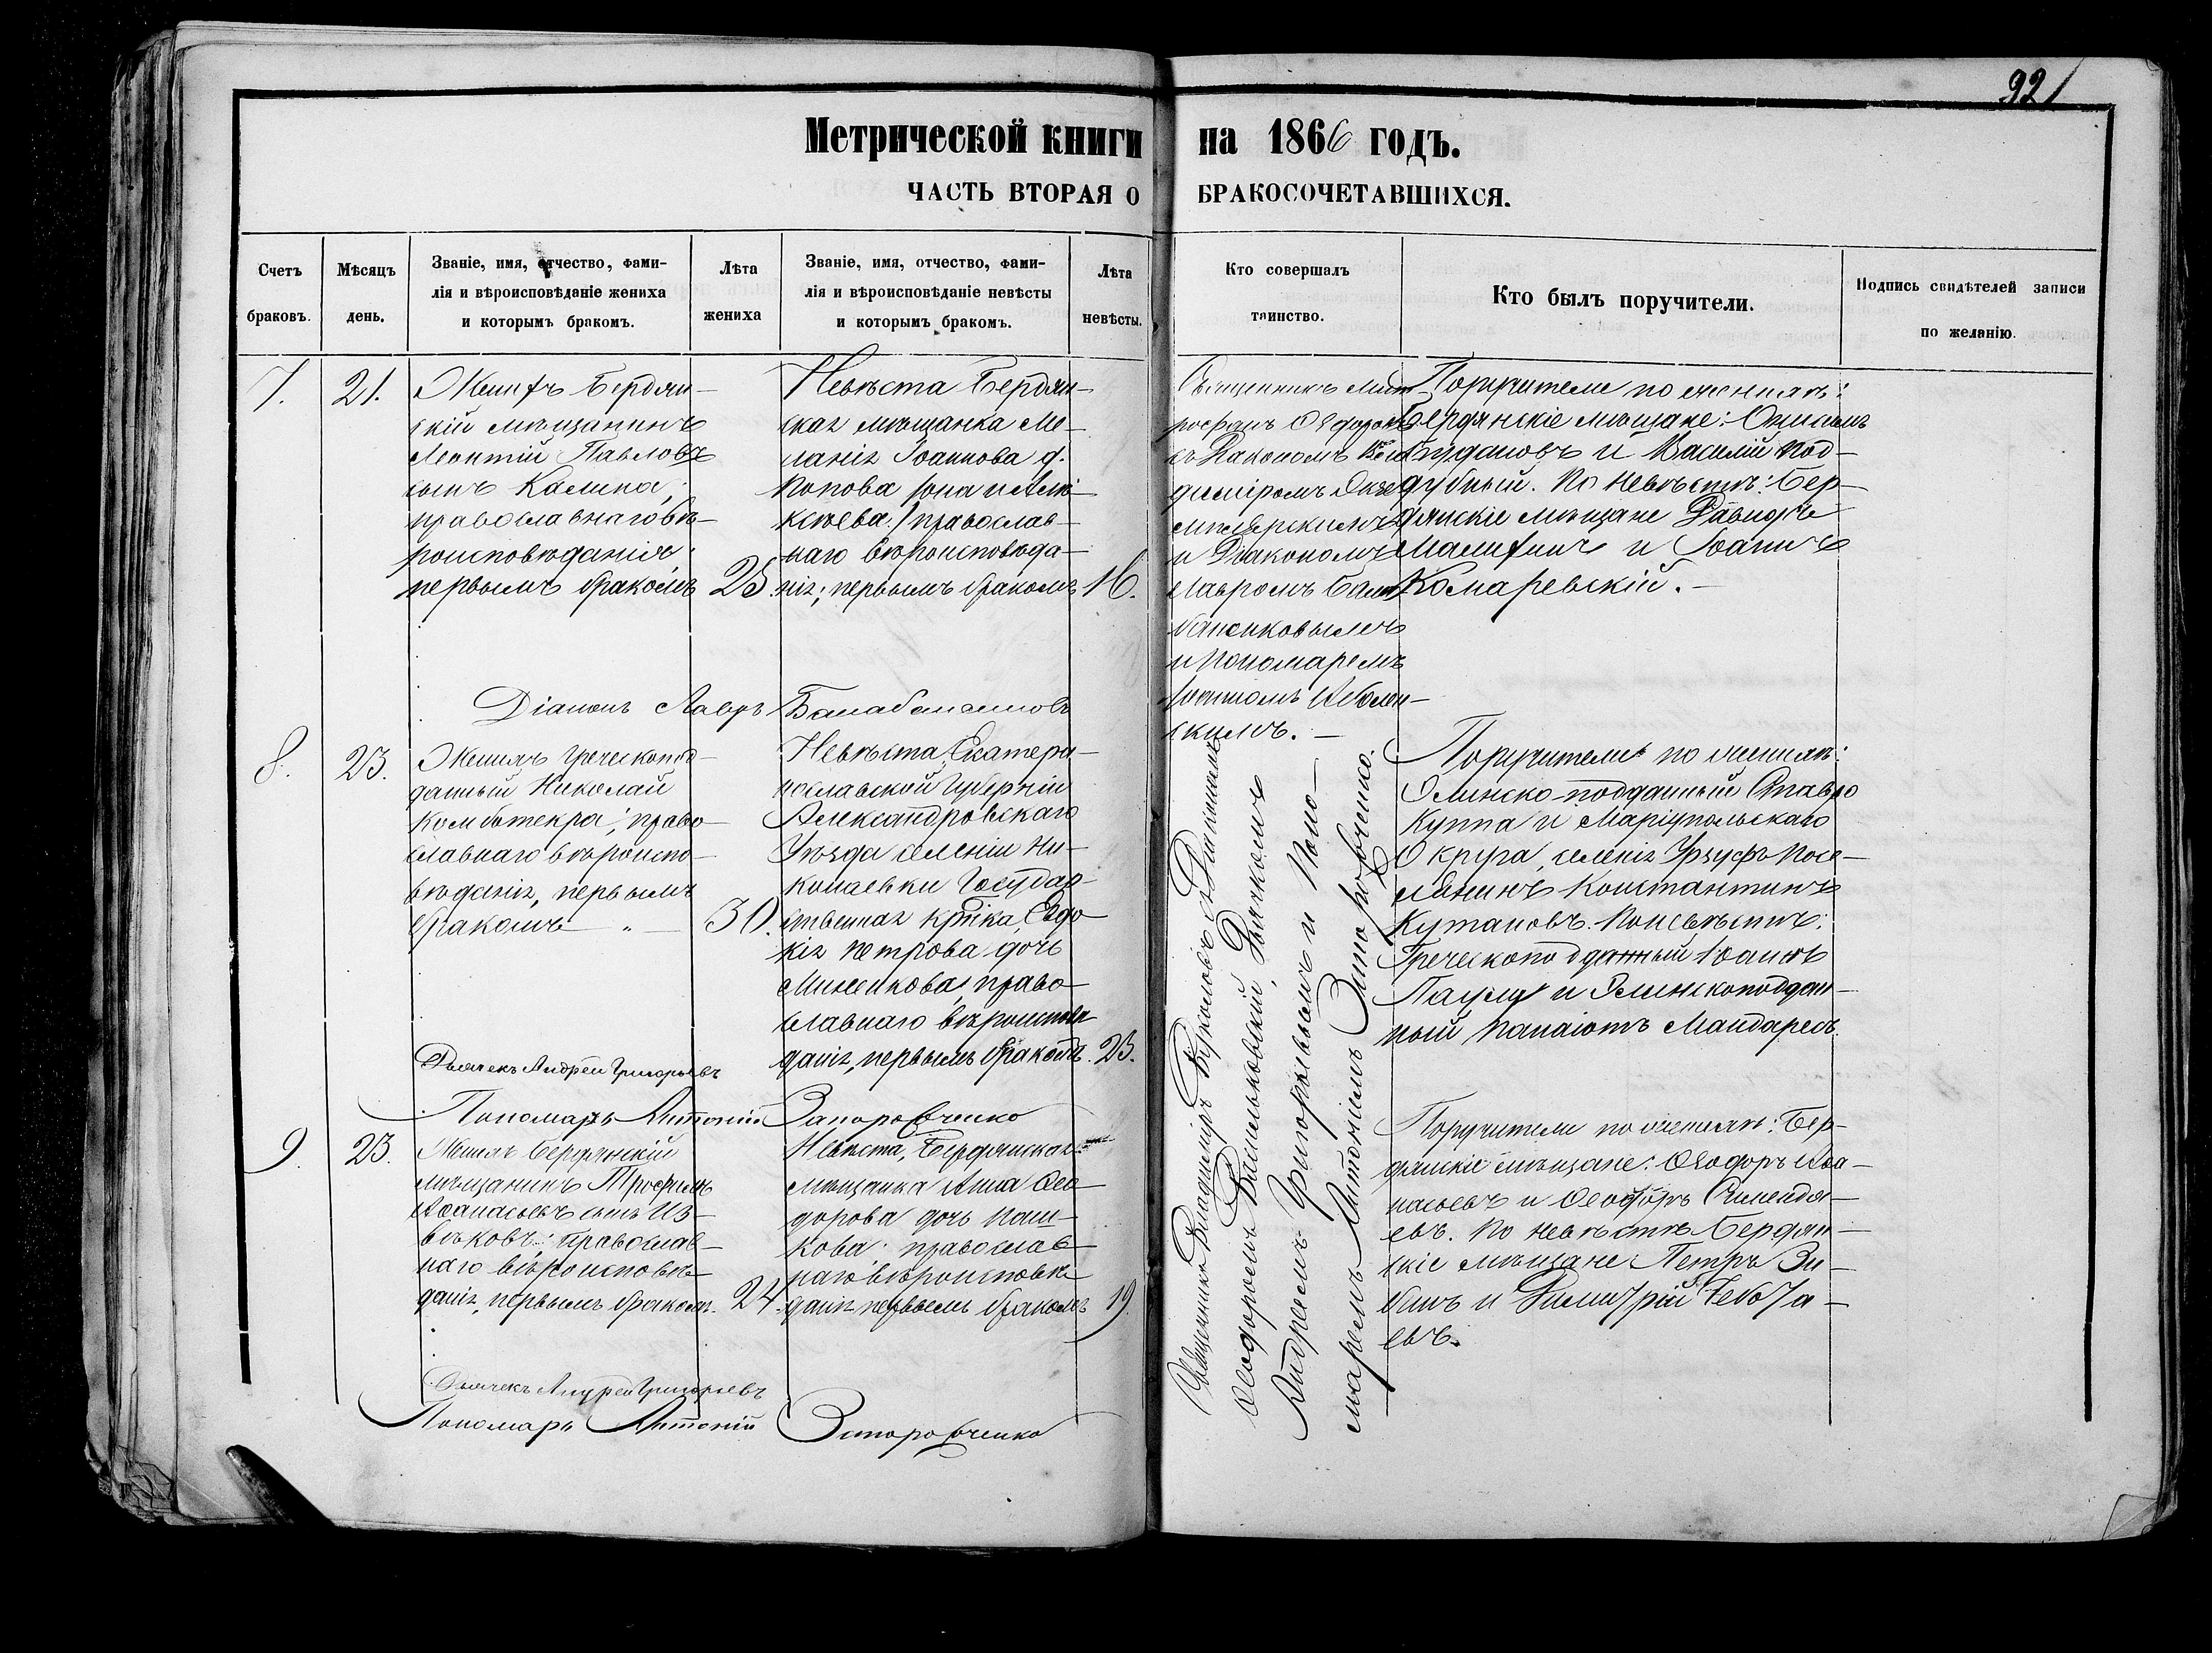 921
Метрической книги на 1866 годъ.
ЧАСТЬ ВТОРАЯ О БРАКОСОЧЕТАВШИХСЯ.
Счетъ
браковъ.
Мѣсяцъ
день.
Званіе, имя, отчество, фами-
лія и вѣроисповѣданіе жениха
и которымъ бракомъ.
Лѣта
жениха
Званіе, имя, отчество, фами-
лія и вѣроисповѣданіе невѣсты
и которымъ бракомъ.
Лѣта
невѣсты.
Кто совершалъ
таинство.
Кто былъ поручители.
Подпись свидѣтелей записи
по желанію.
7.
21.
Женихъ Бердян-
скій мѣщанинъ
Леонтій Павловъ
сынъ Калина,
православнаго вѣ-
роисповѣданія
первымъ бракомъ
25.
Невѣста Бердян-
ская мѣщанка Ме-
ланія Іоаннова д.
Попова она и Алек-
сѣева) православ-
наго вѣроисповѣда-
нія; первымъ бракомъ
16.
Священникъ Мит-
рофанъ
съ Діакономъ
и Діакономъ
Лавромъ Бала-
бановымъ
и Пономаремъ
скимъ. —
Поручители по женихѣ:
Бердянскіе мѣщане:
Бурдановъ и Василій Под-
дубный. По Невѣстѣ: Бер-
дянскіе мѣщане Давидъ
Малихинъ и Іоаннъ
Комаревскій. —
Діаконъ Лавръ
8.
23.
Женихъ Греческопод-
данный Николай
православнаго вѣроиспо-
вѣданія, первымъ
бракомъ — „ —
30.
Невѣста, Екатери-
нославской Губерніи
Александровскаго
Уѣзда селенія Ни-
колаевки Государ-
ственная кр-нка, Евдо-
кія Петрова дочь
православнаго вѣроисповѣ-
данія, первымъ бракомъ.
23.
Дьячекъ Андрей Григорьевъ
Пономарь Антоній Запоровченко
Священникъ Владиміръ съ Діакономъ
Ѳеодоромъ Васильковскій, Дьячкомъ
Андреемъ Григорьевымъ и Поно-
маремъ Антоніемъ Запоровченко.
Поручители по женихѣ:
Элинско-подданный Ставро
Куппа и Маріупольскаго
Округа, селенія Урзуфъ Посе-
лянинъ Константинъ
Кутановъ. По невѣстѣ:
Греческоподданный Іоаннъ
и Элинскоподдан-
ный Панаіотъ Мандаресъ.
9.
23.
Женихъ Бердянскій
мѣщанинъ Трофимъ
Аѳанасьевъ сынъ Из-
вѣковъ; православ-
наго вѣроисповѣ-
данія, первымъ бракомъ.
24.
Невѣста, Бердянская
мѣщанка Анна Ѳео-
дорова дочь Паш-
кова; православ-
наго вѣроисповѣ-
данія первымъ бракомъ
19.
Поручители по женихѣ: Бер-
дянскіе мѣщане: Ѳеодоръ Аѳа-
насьевъ и Ѳеодоръ
евъ. По невѣстѣ Бердян-
скіе мѣщане: Петръ Зи-
бинъ и Димитрій Чебота-
евъ.
Дьячекъ Андрей Григорьевъ
Пономарь Антоній Запоровченко